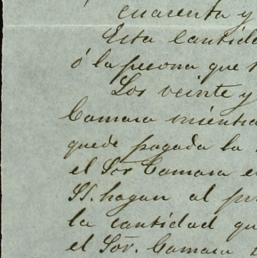 cuarenta y
Esta cantida
ó la persona que
Los veinte y
Camara mientra
quede pagada la
el Sor Camara e
SS. hagan al pr
la cantidad qu
el Sor. Camara